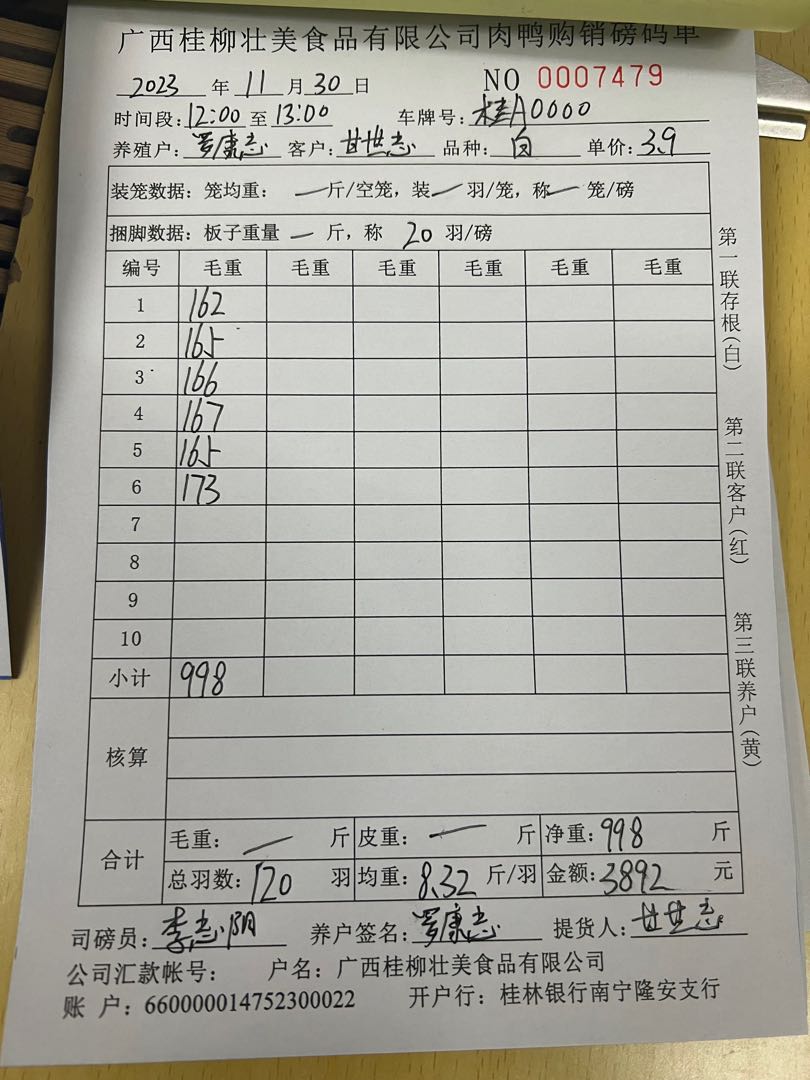 广西桂柳壮美食品有限公司肉鸭购销磅码单
2023 年 11 月 30 日 NO 0007479
时间段: 12:00 至 13:00 车牌号: 桂A0000
养殖户: 罗康志 客户: 甘世志 品种: 白 单价: 3.9
装笼数据: 笼均重: — 斤/空笼, 装 — 羽/笼, 称 — 笼/磅
捆脚数据: 板子重量 — 斤, 称 20 羽/磅
编号 毛重 毛重 毛重 毛重 毛重 毛重
1 162
2 165
3 166
4 167
5 165
6 173
7
8
9
10
小计 998
核算
合计 毛重: — 斤 皮重: — 斤 净重: 998 斤
总羽数: 120 羽 均重: 8.32 斤/羽 金额: 3892 元
司磅员: 李志阴 养户签名: 罗康志 提货人: 甘世志
公司汇款帐号: 户名: 广西桂柳壮美食品有限公司
账 户: 660000014752300022 开户行: 桂林银行南宁隆安支行
第一联存根(白)
第二联客户(红)
第三联养户(黄)